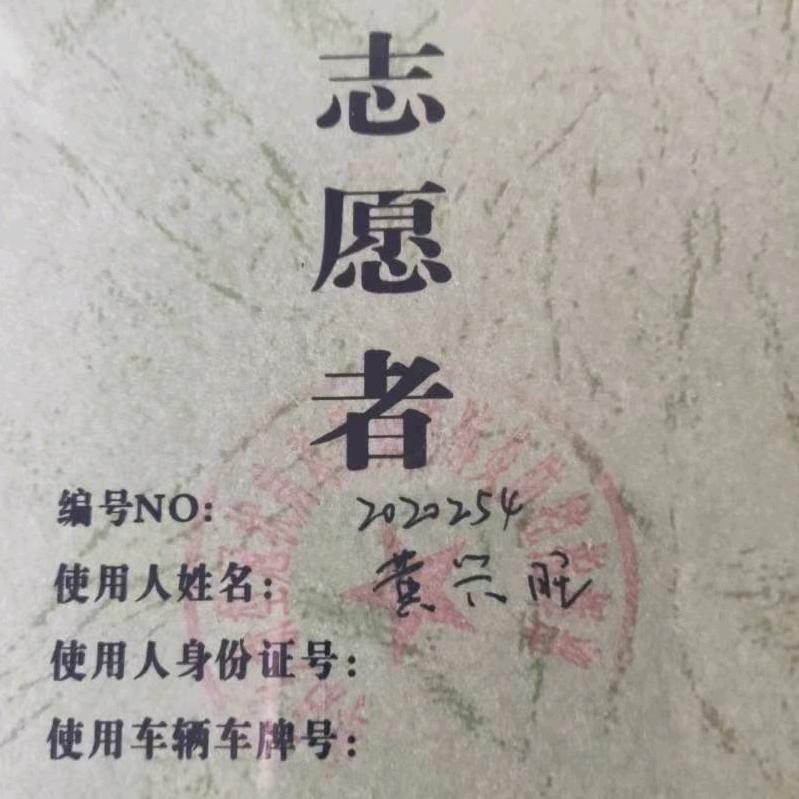 志
愿
者
编号NO: 2020254
使用人姓名: 黄兴旺
使用人身份证号:
使用车辆车牌号: